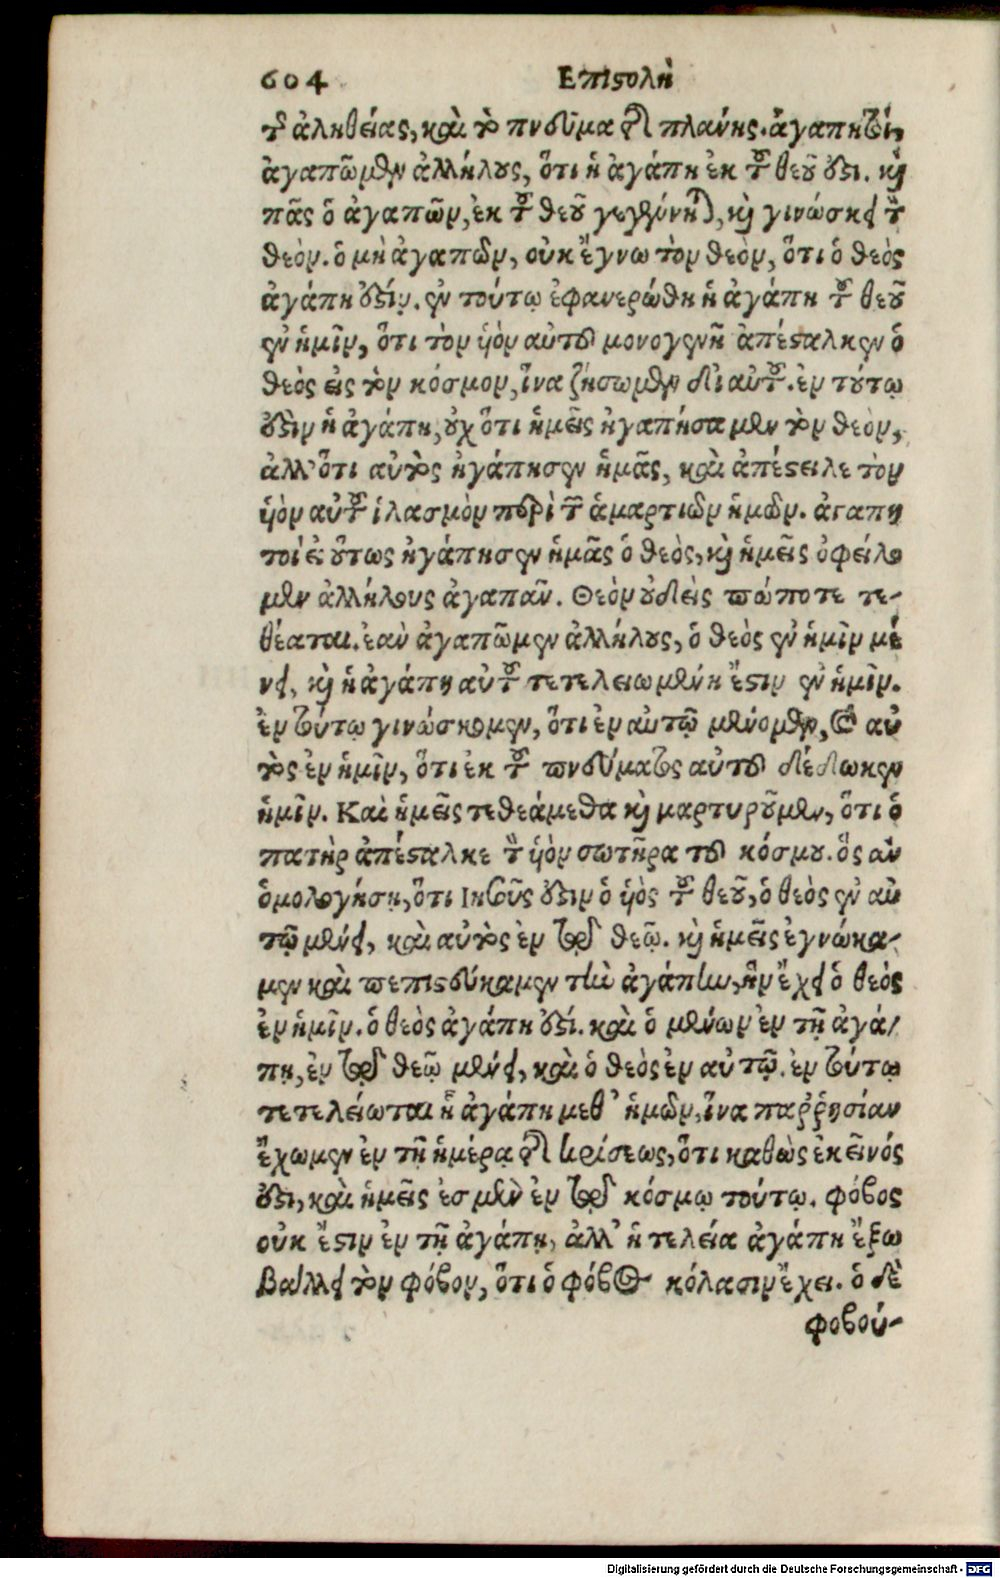 604 Επιστολὴ
τῆς ἀληθείας, καὶ τὸ πνεῦμα τῆς πλάνης. ἀγαπητοί,
ἀγαπῶμεν ἀλλήλους, ὅτι ἡ ἀγάπη ἐκ τοῦ θεοῦ ἐστι. καὶ
πᾶς ὁ ἀγαπῶν, ἐκ τοῦ θεοῦ γεγέννηται, καὶ γινώσκει τὸν
θεόν. ὁ μὴ ἀγαπῶν, οὐκ ἔγνω τὸν θεὸν, ὅτι ὁ θεὸς
ἀγάπη ἐστίν. ἐν τούτῳ ἐφανερώθη ἡ ἀγάπη τοῦ θεοῦ
ἐν ἡμῖν, ὅτι τὸν ὑὸν αὐτοῦ μονογενῆ ἀπέσταλκεν ὁ
θεὸς εἰς τὸν κόσμον, ἵνα ζήσωμεν δι αὐτοῦ. ἐν τούτῳ
ἐστὶν ἡ ἀγάπη, οὐχ ὅτι ἡμεῖς ἠγαπήσαμεν τὸν θεὸν,
ἀλλ' ὅτι αὐτὸς ἠγάπησεν ἡμᾶς, καὶ ἀπέστειλε τὸν
ὑὸν αὐτοῦ ἱλασμὸν περὶ τῶν ἁμαρτιῶν ἡμῶν. ἀγαπη
τοὶ εἰ οὕτως ἠγάπησεν ἡμᾶς ὁ θεὸς, καὶ ἡμεῖς ὀφείλο
μεν ἀλλήλους ἀγαπᾶν. Θεὸν οὐδεὶς πώποτε τε-
θέαται. ἐὰν ἀγαπῶμεν ἀλλήλους, ὁ θεὸς ἐν ἡμῖν μέ
νει, καὶ ἡ ἀγάπη αὐτοῦ τετελειωμένη ἔστιν ἐν ἡμῖν.
ἐν τούτῳ γινώσκομεν, ὅτι ἐν αὐτῷ μένομεν, καὶ αὐ
τὸς ἐν ἡμῖν, ὅτι ἐκ τοῦ πνεύματος αὐτοῦ δέδωκεν
ἡμῖν. Καὶ ἡμεῖς τεθεάμεθα καὶ μαρτυροῦμεν, ὅτι ὁ
πατὴρ ἀπέσταλκε τὸν ὑὸν σωτῆρα τοῦ κόσμου. ὃς ἀν
ὁμολογήσῃ, ὅτι Ιησοῦς ἐστιν ὁ ὑὸς τοῦ θεοῦ, ὁ θεὸς ἐν αὐ
τῷ μένει, καὶ αὐτὸς ἐν τῷ θεῷ. καὶ ἡμεῖς ἐγνώκα-
μεν καὶ πεπιστεύκαμεν τὴν ἀγάπην, ἣν ἔχει ὁ θεὸς
ἐν ἡμῖν. ὁ θεὸς ἀγάπη ἐστί. καὶ ὁ μένων ἐν τῇ ἀγά/
πῃ, ἐν τῷ θεῷ μένει, καὶ ὁ θεὸς ἐν αὐτῷ. ἐν τούτῳ
τετελείωται ἡ ἀγάπη μεθ' ἡμῶν, ἵνα παῤῥησίαν
ἔχωμεν ἐν τῇ ἡμέρᾳ τῆς κρίσεως, ὅτι καθὼς ἐκεῖνός
ἐστι, καὶ ἡμεῖς ἐσμὲν ἐν τῷ κόσμῳ τούτῳ. φόβος
οὐκ ἔστιν ἐν τῇ ἀγάπῃ, ἀλλ' ἡ τελεία ἀγάπη ἔξω
βάλλει τὸν φόβον, ὅτι ὁ φόβος κόλασιν ἔχει. ὁ δὲ
φοβού-
Digitalisierung gefördert durch die Deutsche Forschungsgemeinschaft - DFG